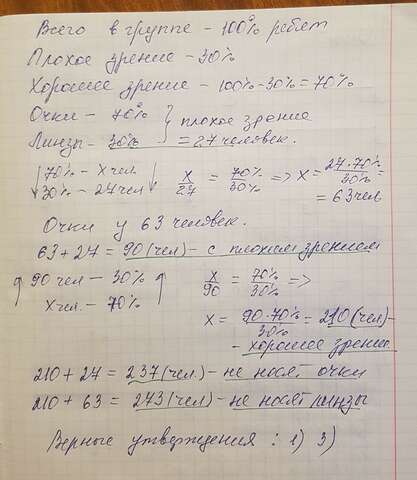 Всего в группе - 100% ребят
Плохое зрение - 30%
Хорошее зрение - 100%-30%=70%
Очки - 70% } плохое зрение
Линзы - 30% = 27 человек.
↓70% - x чел↓ x/27 = 70%/30% => x = 27·70%/30% =
30% - 27 чел = 63 чел
Очки у 63 человек.
63+27 = 90 (чел) - с плохим зрением
↑90 чел - 30%↑ x/90 = 70%/30% =>
x чел. - 70%
x = 90·70%/30% = 210 (чел) -
- хорошее зрение
210+27 = 237 (чел) - не носят очки
210+63 = 273 (чел) - не носят линзы
Верные утверждения: 1) 3)